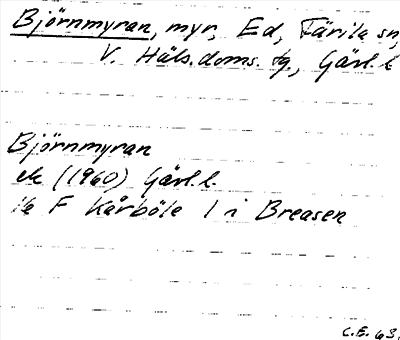 Björnmyran, myr, Ed, Färila sn,
V. Häls. doms. sg., Gävl. l
Björnmyran
ek (1960) Gävl. l.
F Kårböle 1 i Breasen
C.E. 63.